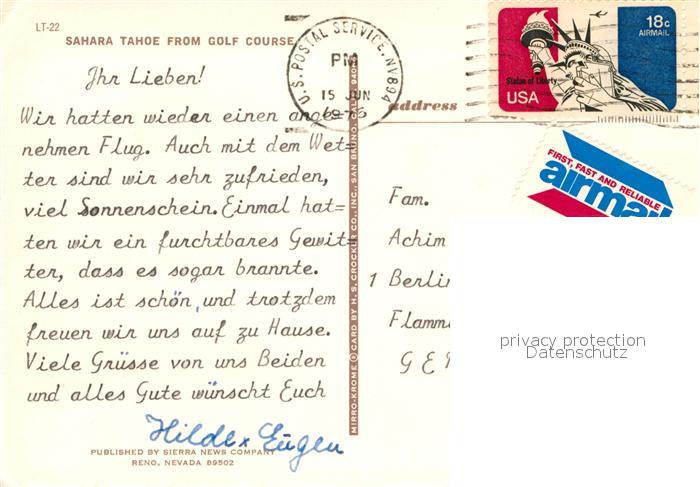 LT-22
SAHARA TAHOE FROM GOLF COURSE
Ihr Lieben!
Wir hatten wieder einen ange=
nehmen Flug. Auch mit dem Wet=
ter sind wir sehr zufrieden,
viel Sonnenschein. Einmal hat=
ten wir ein furchtbares Gewit=
ter, dass es sogar brannte.
Alles ist schön, und trotzdem
freuen wir uns auf zu Hause.
Viele Grüsse von uns Beiden
und alles Gute wünscht Euch
Hilde + Eugen
PUBLISHED BY SIERRA NEWS COMPANY
RENO, NEVADA 89502
MIRRO-KROME ® CARD BY H. S. CROCKER CO., INC., SAN BRUNO, CALIF. 940
U.S. POSTAL SERVICE, NV 894
PM
15 JUN
address
18c
AIRMAIL
Statue of Liberty
USA
FIRST, FAST AND RELIABLE
airmail
Fam.
Achim
1 Berlin
Flamm
GE
privacy protection
Datenschutz